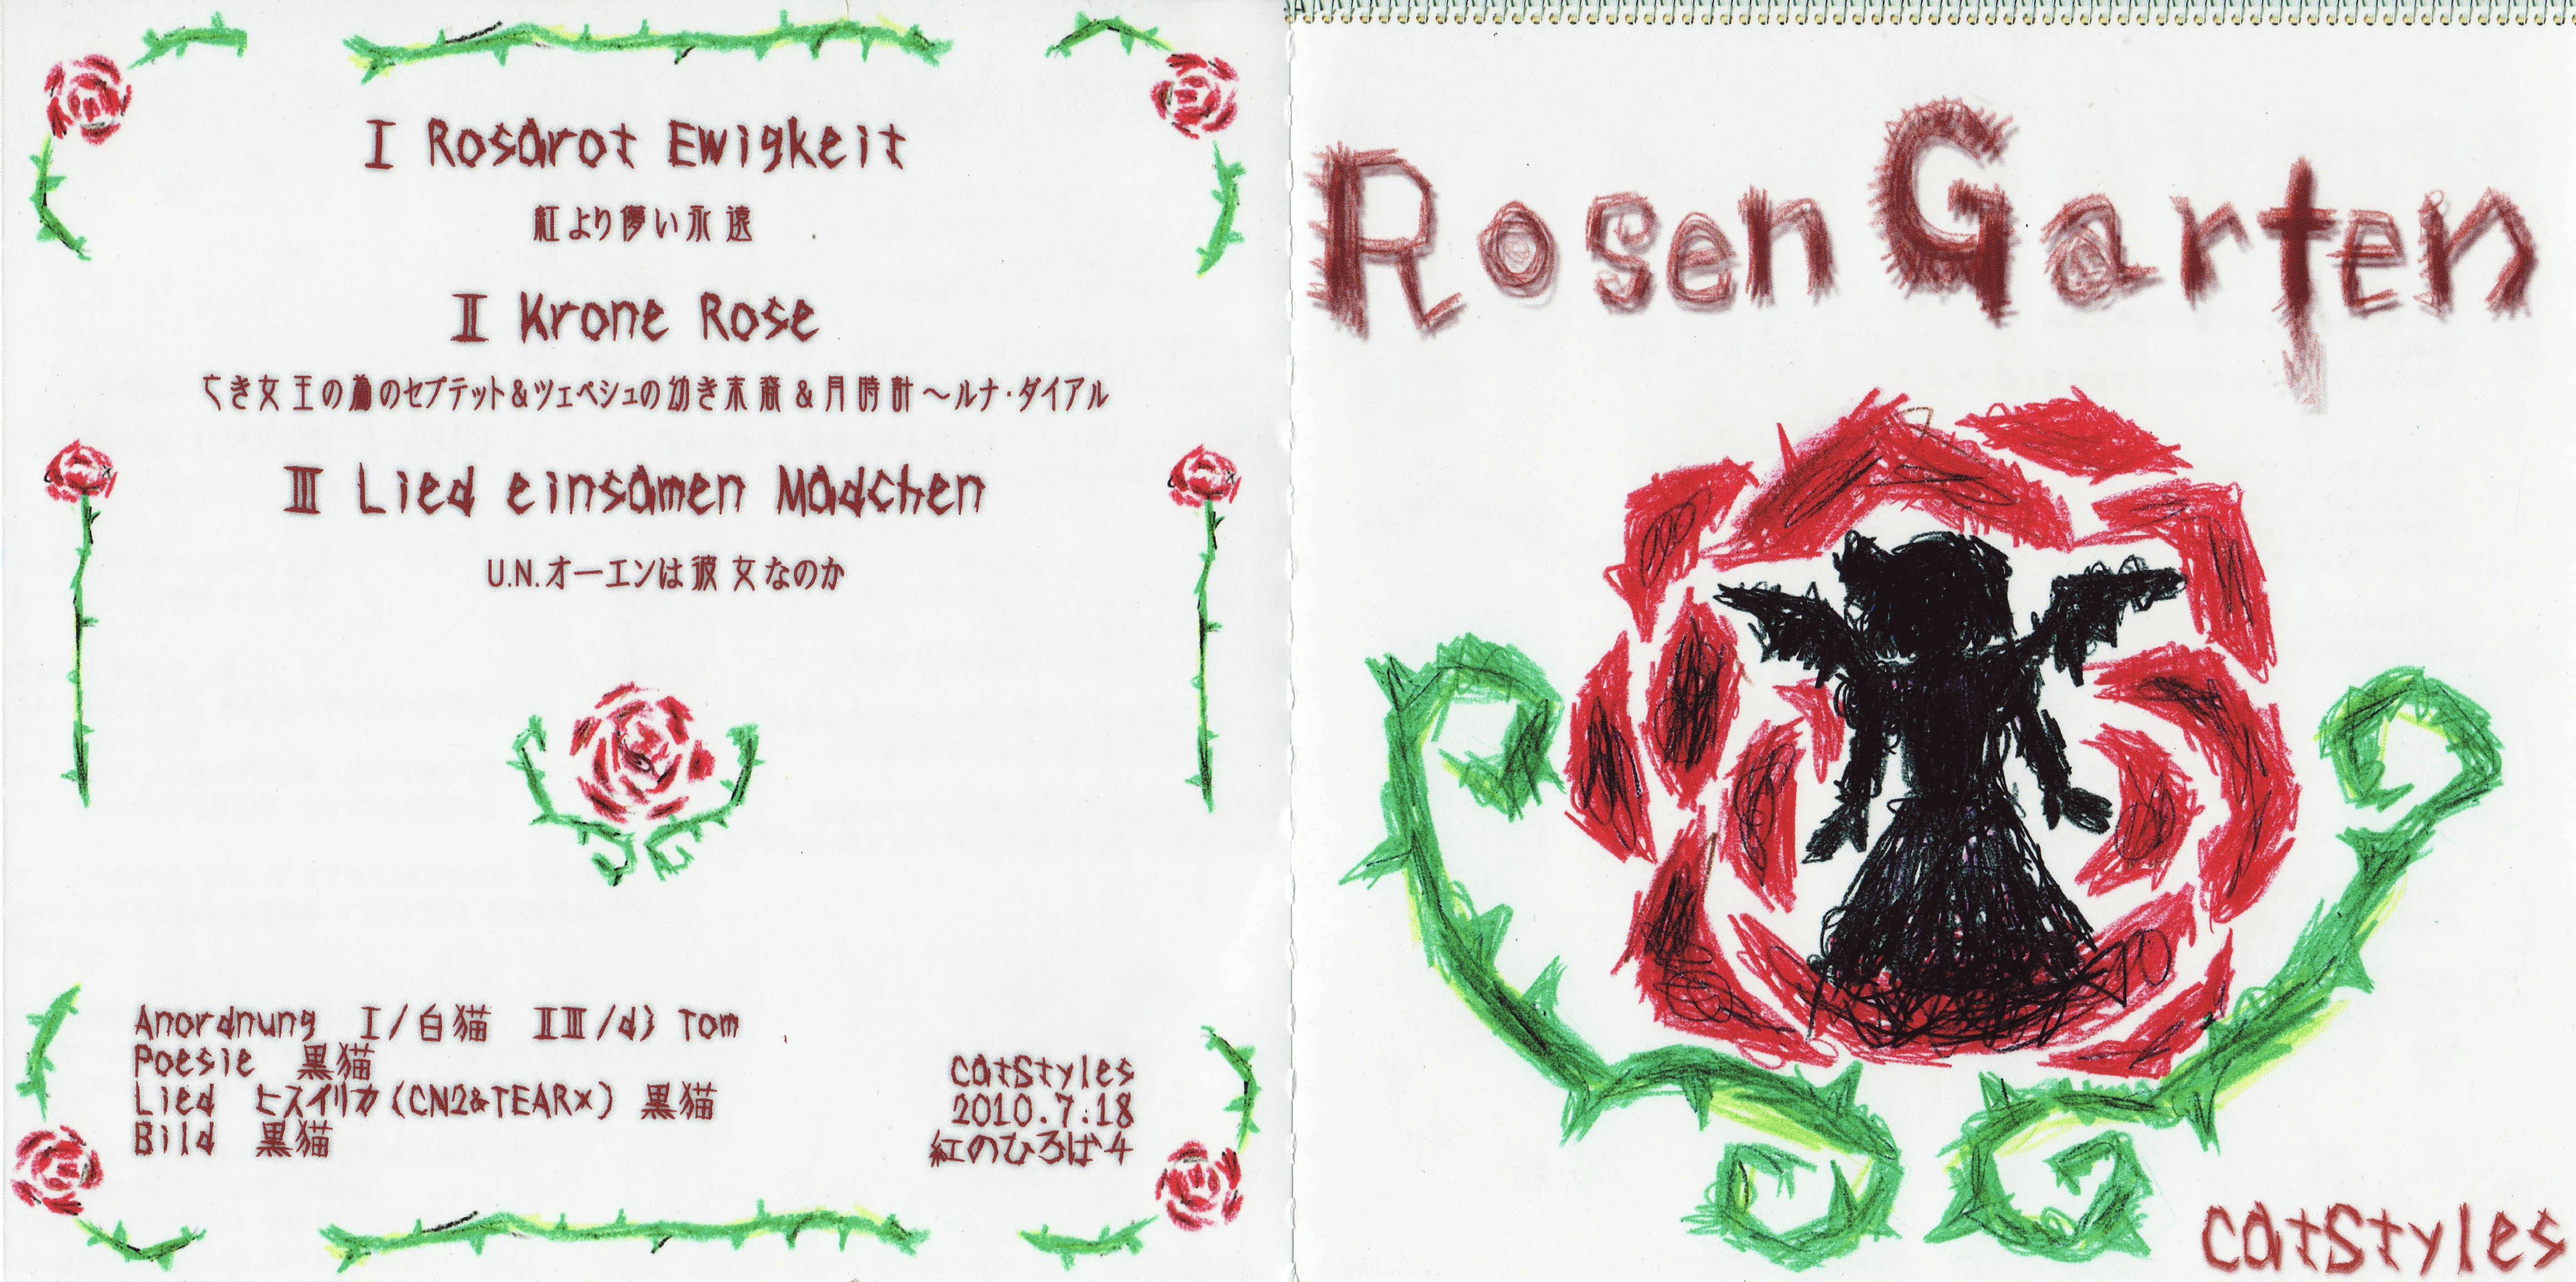 I Rosarot Ewigkeit
紅より儚い永遠
II Krone Rose
亡き女王の為のセプテット&ツェペシュの幼き末裔&月時計～ルナ・ダイアル
III Lied einsamen Madchen
U.N.オーエンは彼女なのか
Anordnung I/白猫 II III/dj Tom
Poesie 黒猫
Lied ヒスイリカ(CN2&TEAR×) 黒猫
Bild 黒猫
catStyles
2010.7.18
紅のひろば4
Rosen Garten
catStyles